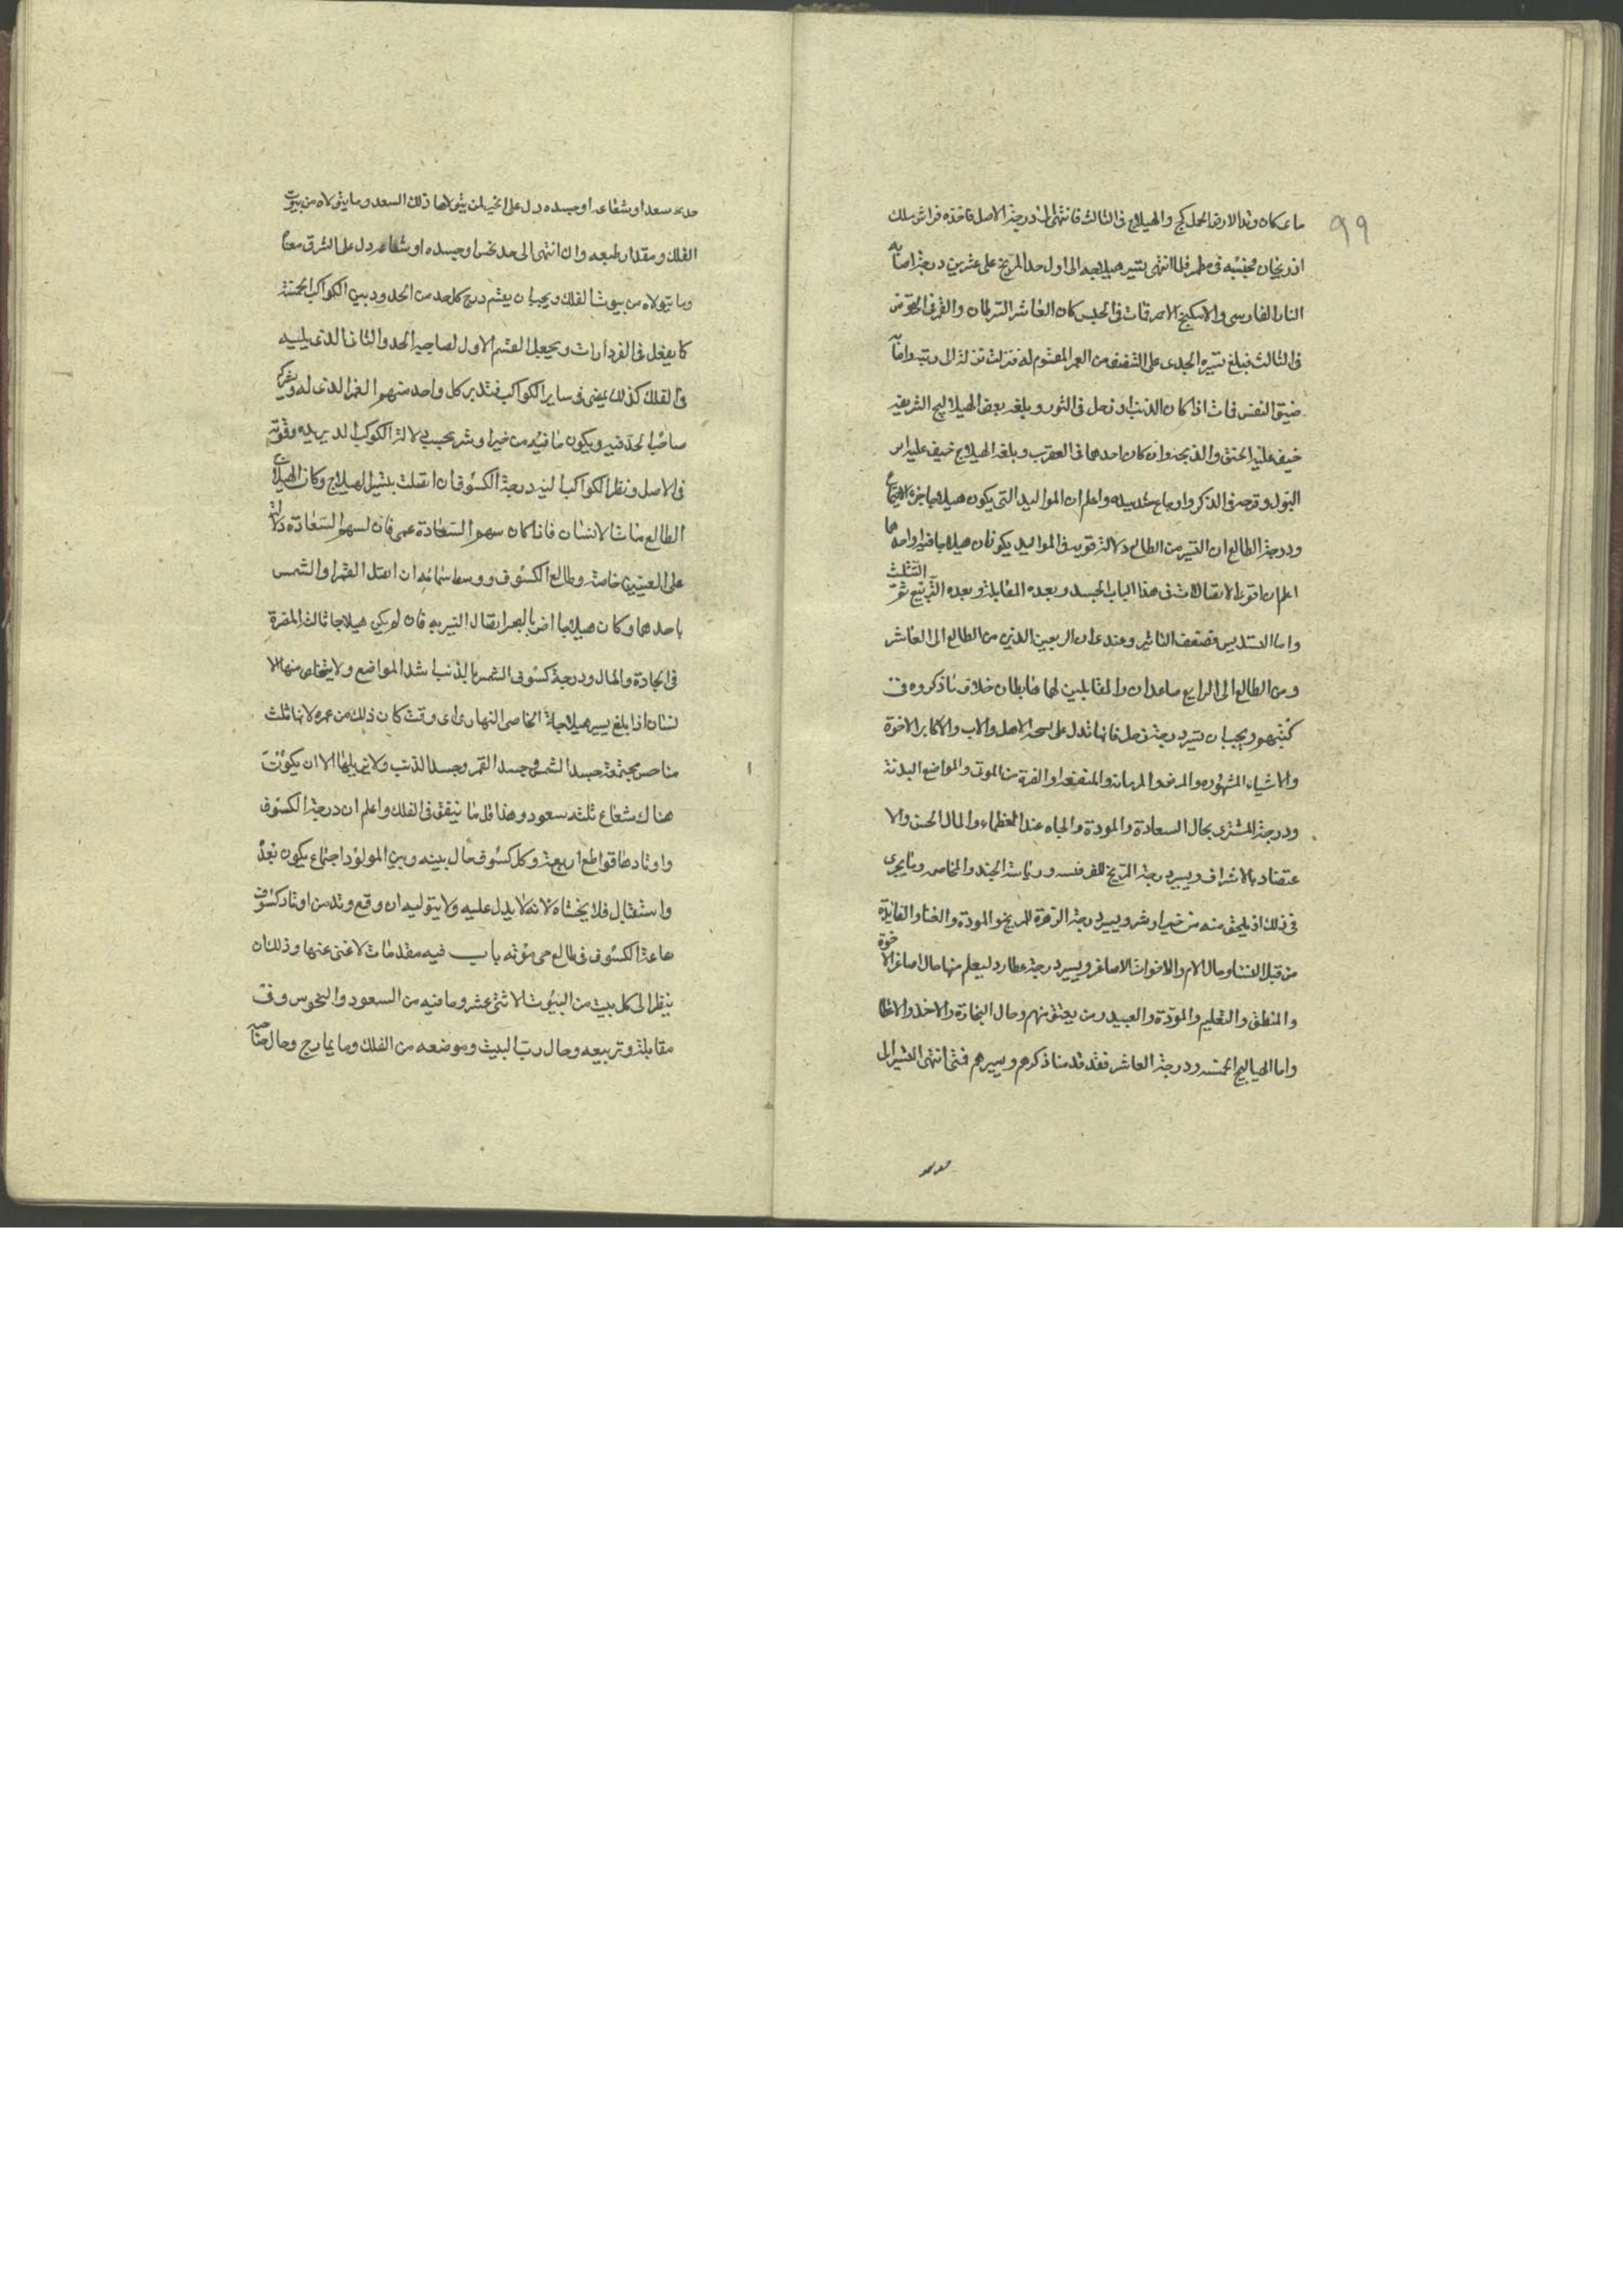 ٩٩
ما عكان وتد الارض الحمل كج والهيلاج فى الثالث فانتهى الى درجة الاصل فاخذه فراش ملك
اذربيجان فحبسه فى مطمر فلما انتهى تسير هيلاجه الى اول حد المريخ على عشرين درجة اصابه
النار الفارسى والاسكيخ الاحمر فمات فى الحبس كان العاشر السرطان والقمر فى القوس
فى الثالث فبلغ تسيره الجدى على النصف من العمر المقسوم له فنزلت نزلة الى رئته واصابه
ضيق النفس فمات اذا كان الذنب او زحل فى الثور وبلغه بعض الهيلاليج الشريفة
خيف عليه الخنق والذبحة وان كان احدهما فى العقرب وبلغه الهيلاج خيف عليه اسر
البول وقصر فى الذكر واوجاع شديدة واعلم ان المواليد التى يكون هيلاجها جزء الاجتماع
ودرجة الطالع ان التسير من الطالع دلالته قوية فى المواليد يكونان هيلاجا فيه او احدهما
اعلم ان اقوى الاتصالات فى هذا الباب الجسد وبعده المقابلة وبعده التربيع ثم التثليث
واما التسديس فضعيف التاثير وعندى ان الربعين الذين من الطالع الى العاشر
ومن الطالع الى الرابع صاعدان والمقابلين لهما هابطان خلاف ما ذكروه فى
كتبهم ويجب ان تسير درجة زحل فانها تدل على صحة الاصل والاب والاكابر الاخوة
والاشياء المشهوره والمرض والزمانة والمنفعة او الضرة من الموتى والمواضع البدنة
ودرجة المشترى بحال السعادة والمودة والجاه عند العظماء والمال الحسن والا
عتضاد بالاشراف ويسير درجة المريخ للفرنسه ورياسة الجند والمخاصم وما يجرى
فى ذلك اذ يلحق منه من خير او شر ويسير درجة الزهرة للمريخ والمودة والغنا والفايدة
من قبل النساء وحال الام والاخوات الاصاغر ويسير درجة عطارد ليعلم منها حال اصاغر الاخوة
والمنطق والتعليم والمودة والعبيد ومن يعتق منهم وحال التجارة والاخذ والاعطا
واما الهياليج الخمسه ودرجة العاشر فقد قدمنا ذكرهم ويسيرهم فمتى انتهى التسير الى
حد سعد او شعاعه او جسده دل على الخير لمن يتولاها ذلك السعد وما يتولاه من بيوت
الفلك ومقدار طبعه وان انتهى الى حد نحس او جسده او شعاعه دل على الشر فى معناه
وما يتولاه من بيوت الفلك ويجب ان يقسم درج كل حد من الحدود بين الكواكب الخمسة
كما يفعل فى الفردارات ويجعل القسم الاول لصاحب الحد والثانى الذى يليه
فى الفلك كذلك يمضى فى ساير الكواكب فتدبر كل واحد منهم العمر الذى له ويشركه
صاحب الحد فيه ويكون ما فيه من خير او شر بحسب دلالة الكوكب المدبر له وقوته
فى الاصل ونظر الكواكب اليه درجة الكسوف ان اتصلت بتسير الهيلاج وكان الهيلاج
الطالع مات الانسان فاذا كان سهم السعادة عمى فان لسهم السعادة دلالة
على العينين خاصة وطالع الكسوف ووسط سمائه ان اتصل القمر او الشمس
باحدهما وكان هيلاجا اضر بالبصر اتصال التسير به فان لم يكن هيلاجا نالت المضرة
فى الجادة والمال ودرجة كسوف الشمس بالذنب اشد المواضع ولا يتخلص منها الا
نسان اذا بلغ يسير هيلاجه الخاص النهارى اى وقت كان ذلك من عمره لانها ثلث
مناحس مجتمعة جسد الشمس وجسد القمر وجسد الذنب ولا يزيلها الا ان يكون
هناك شعاع ثلثه سعود وهذا قل ما يتفق فى الفلك واعلم ان درجة الكسوف
واوتادها قواطع اربعة وكل كسوف حال بينه وبين المولود اجتماع يكون بعد
واستقبال فلا يخشاه لانه لا يدل عليه ولا يتوليه ان وقع وتد من اوتاد كسوف
ساعة الكسوف فى طالع حى موته باب فيه مقدمات لا غنى عنها وذلك ان
ينظر الى كل بيت من البيوت الاثنى عشر وما فيه من السعود والنحوس وفى
مقابلة وتربيعه وحال رب البيت وموضعه من الفلك وما يمازج وحال صاحبه